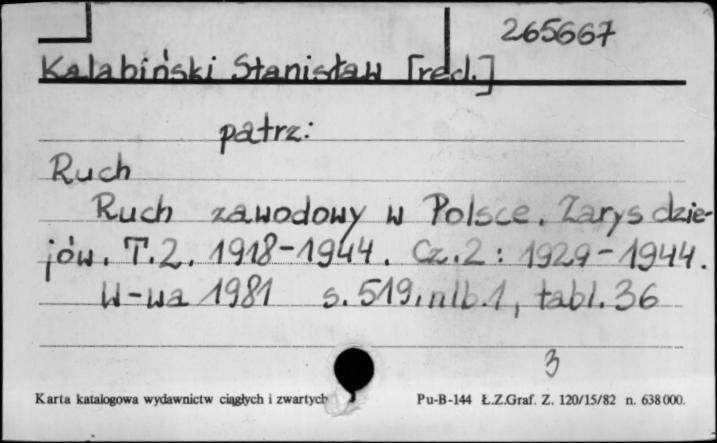 265667
Kalabiński Stanisław [red.]
patrz:
Ruch
Ruch zawodowy w Polsce. Zarys dzie-
jów. T.2. 1918-1944. Cz.2: 1929-1944.
W-wa 1981 s. 519, nlb.1, tabl. 36
3
Karta katalogowa wydawnictw ciągłych i zwartych Pu-B-144 Ł.Z.Graf. Z. 120/15/82 n. 638000.